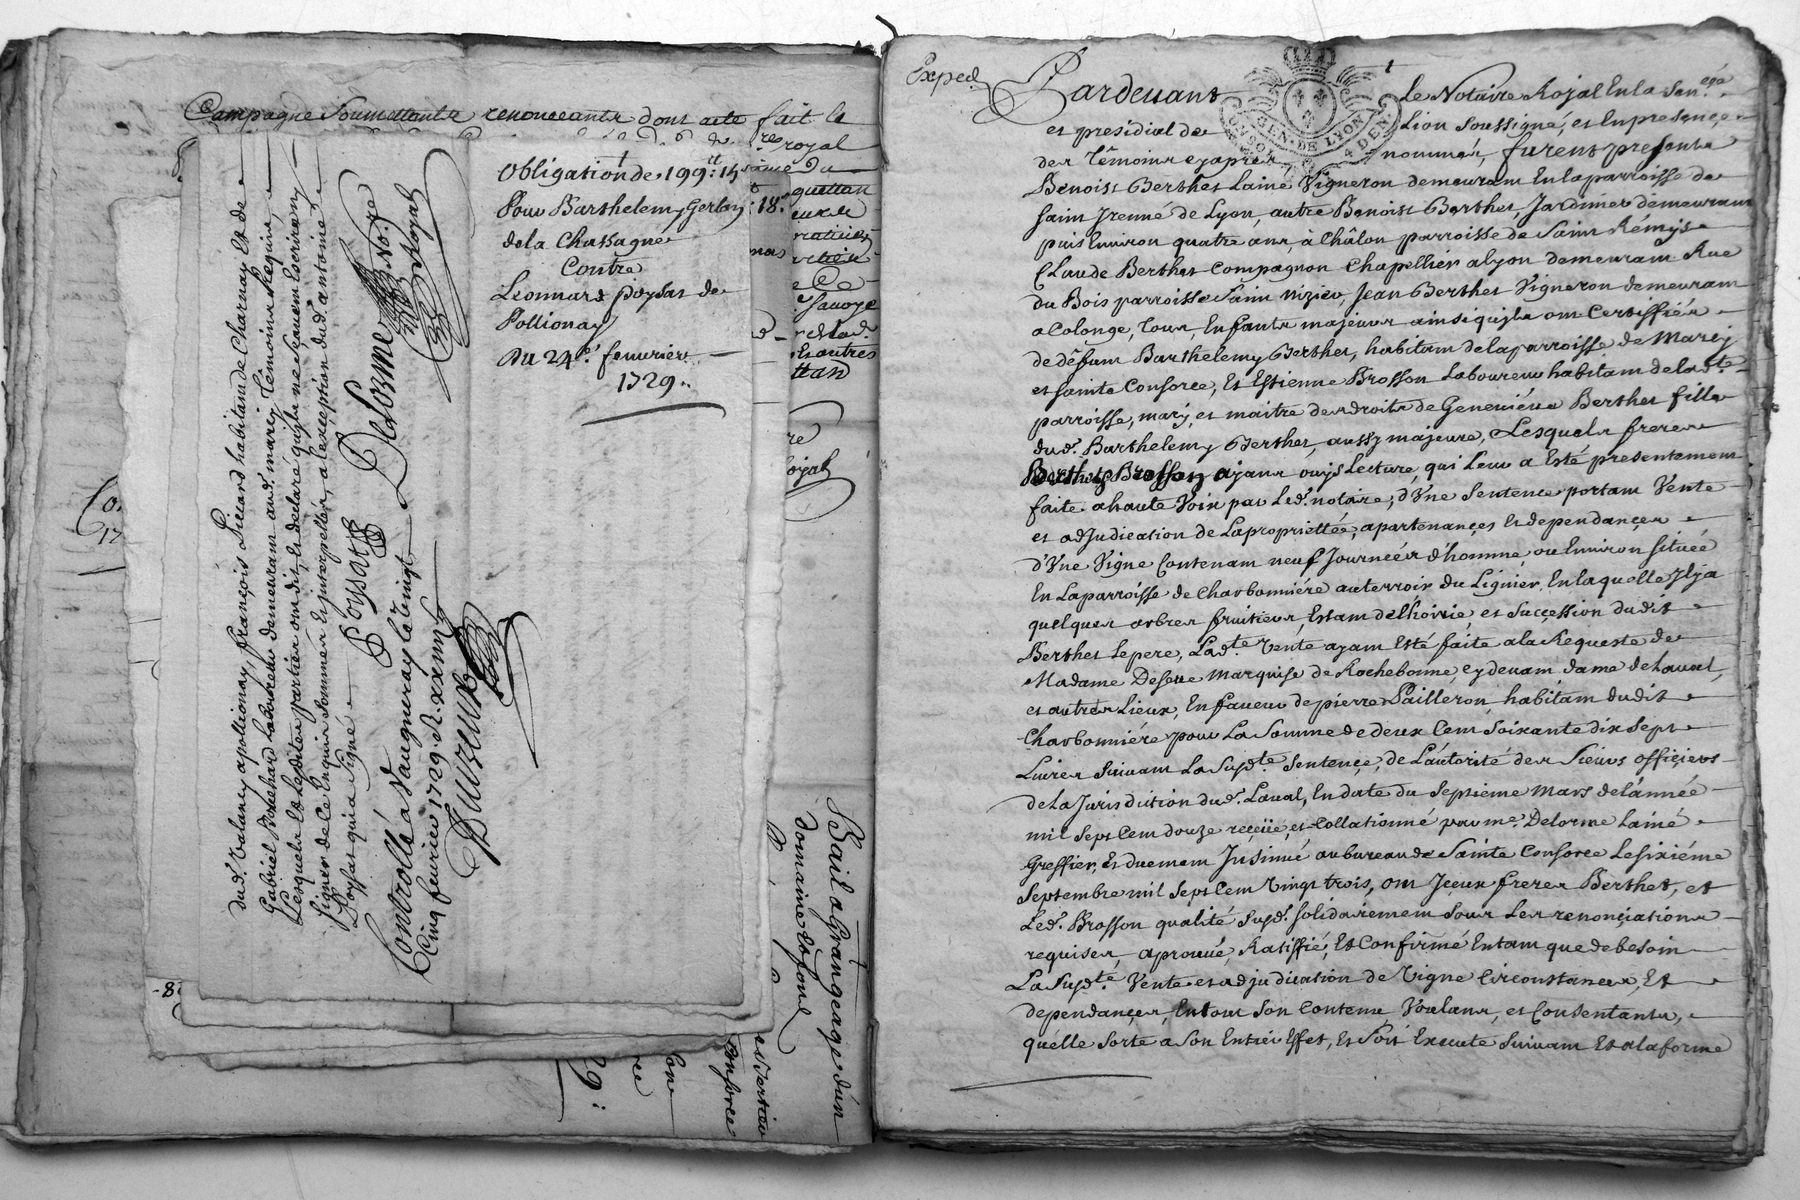 Campagne Soumettants renonceants dont acte fait le
Obligation de 199 tt: 14
Pour Barthelemy Gerlay 18 s
dela Chassagne
Contre
Leonnard poysat de
Pollionay
Du 24e. fevurier
1729.
dud. Valency apolionay, françois Licuard habitant de Charnay Et de
Gabriel Bouchard Laboureur demeurant aud. marcy Témoins Requis,
Lesquels Et Lesdites parties ont dit, Et declaré quils ne Scavent Escrire ny
Signer de Ce Enquis Sommés Et interpellés, a lexception dud. antoine
Poyssat qui a Signé
Poyssat
Delorme
No.re Royal
Controllé a Vaugneray le vingt
Cinq feurier 1729. Rt. xxiiij s
Duvzeux
Bail a Grangeage d'un
domaine Et fond
Exped.
Pardeuant Le Notaire Royal En la Sen.cée
et presidial de Lion Soussigné, et En presence
des Témoins cy apres nommés, furent presents
Benoist Berthet Lainé Vigneron demeurant En la parroisse de
Saint Jrenné de Lyon, autre Benoist Berthet, Jardinier demeurant
puis Environ quatre ans, à Châlon parroisse de Saint Rémys
Claude Berthet Compagnon Chapellier a lyon demeurant Rue
du Bois parroisse Saint Nizier, Jean Berthet Vigneron demeurant
a Colonge, Tous Enfants majeurs ainsi quils ont Certiffiés
de défunt Barthelemy Berthet, habitant de la parroisse de Marcy
et sainte Consorce, Et Estienne Brosson Laboureur habitant de lad.te
parroisse, mary, et maitre des droits de Geneviéve Berthet fille
dud. Barthelemy Berthet, aussy majeure, Lesquels freres
Berthet Et Brosson ayans ouys Lecture, qui Leur a Esté presentement
faite a haute Voix par Led. notaire, d'Vne Sentence portant Vente
et adJudication de La propriettée, apartenances Et dependances
d'Vne Vigne Contenant neuf Journées d'homme, ou Environ Située
En La parroisse de Charbonniére au terroir du Lignier, En laquelle Jl y a
quelques arbres fruitiers, Estant de l'hoirie, et Succession dudit
Berthet Le pere, Lad.te Vente ayant Esté faite a la Requeste de
Madame Deseve Marquise de Rochebonne, cy devant dame de Laval,
et autres Lieux, En faveur de pierre Pailleron habitant dudit
Charbonniére pour La Somme de deux Cent Soixante dix Sept
Livres Suivant La Susd.te Sentence, de L'autorité des Sieurs officiers
de La Jurisdiction dud. Laval, En date du Septieme Mars de l'année
mil Sept Cent douze reçeüe, et Collationné par me. Delorme Lainé
Greffier, Et duement Jnsinué au bureau de Sainte Consorce Le Sixiéme
Septembre mil Sept Cent Vingt trois, ont Jceux freres Berthet, et
Led. Brosson qualité susd. solidairement Sous Les renonciations
requises, aprouvé, Ratiffié, Et Confirmé En tant que de besoin
La Susd.te Vente et adjudication de Vigne Circonstances, Et
dependances, En tout Son Contenu Voulans, et Consentants,
quelle Sorte a Son Entier Effet, Et Soit Executé Suivant Et a la forme